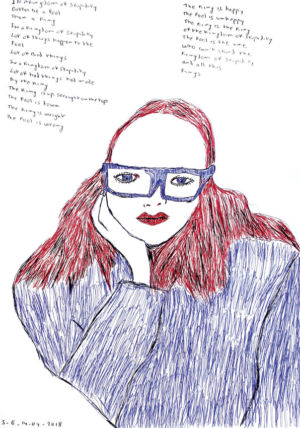 In a Kingdom of Stupidity
Better be a Fool
Than a King
In a Kingdom of Stupidity
Lot of things happen to the
Fool
Lot of Bad things
In a Kingdom of Stupidity
Lot of bad things not made
By the King
The King is up straight on the top
The Fool is down
The King is wright
The Fool is wrong
The King is happy
The Fool is unhappy
The King is the King
of the Kingdom of Stupidity
The Fool is the one
Who can't stand the
Kingdom of Stupidity
And all this
Kings
S-E, 14-04-2018